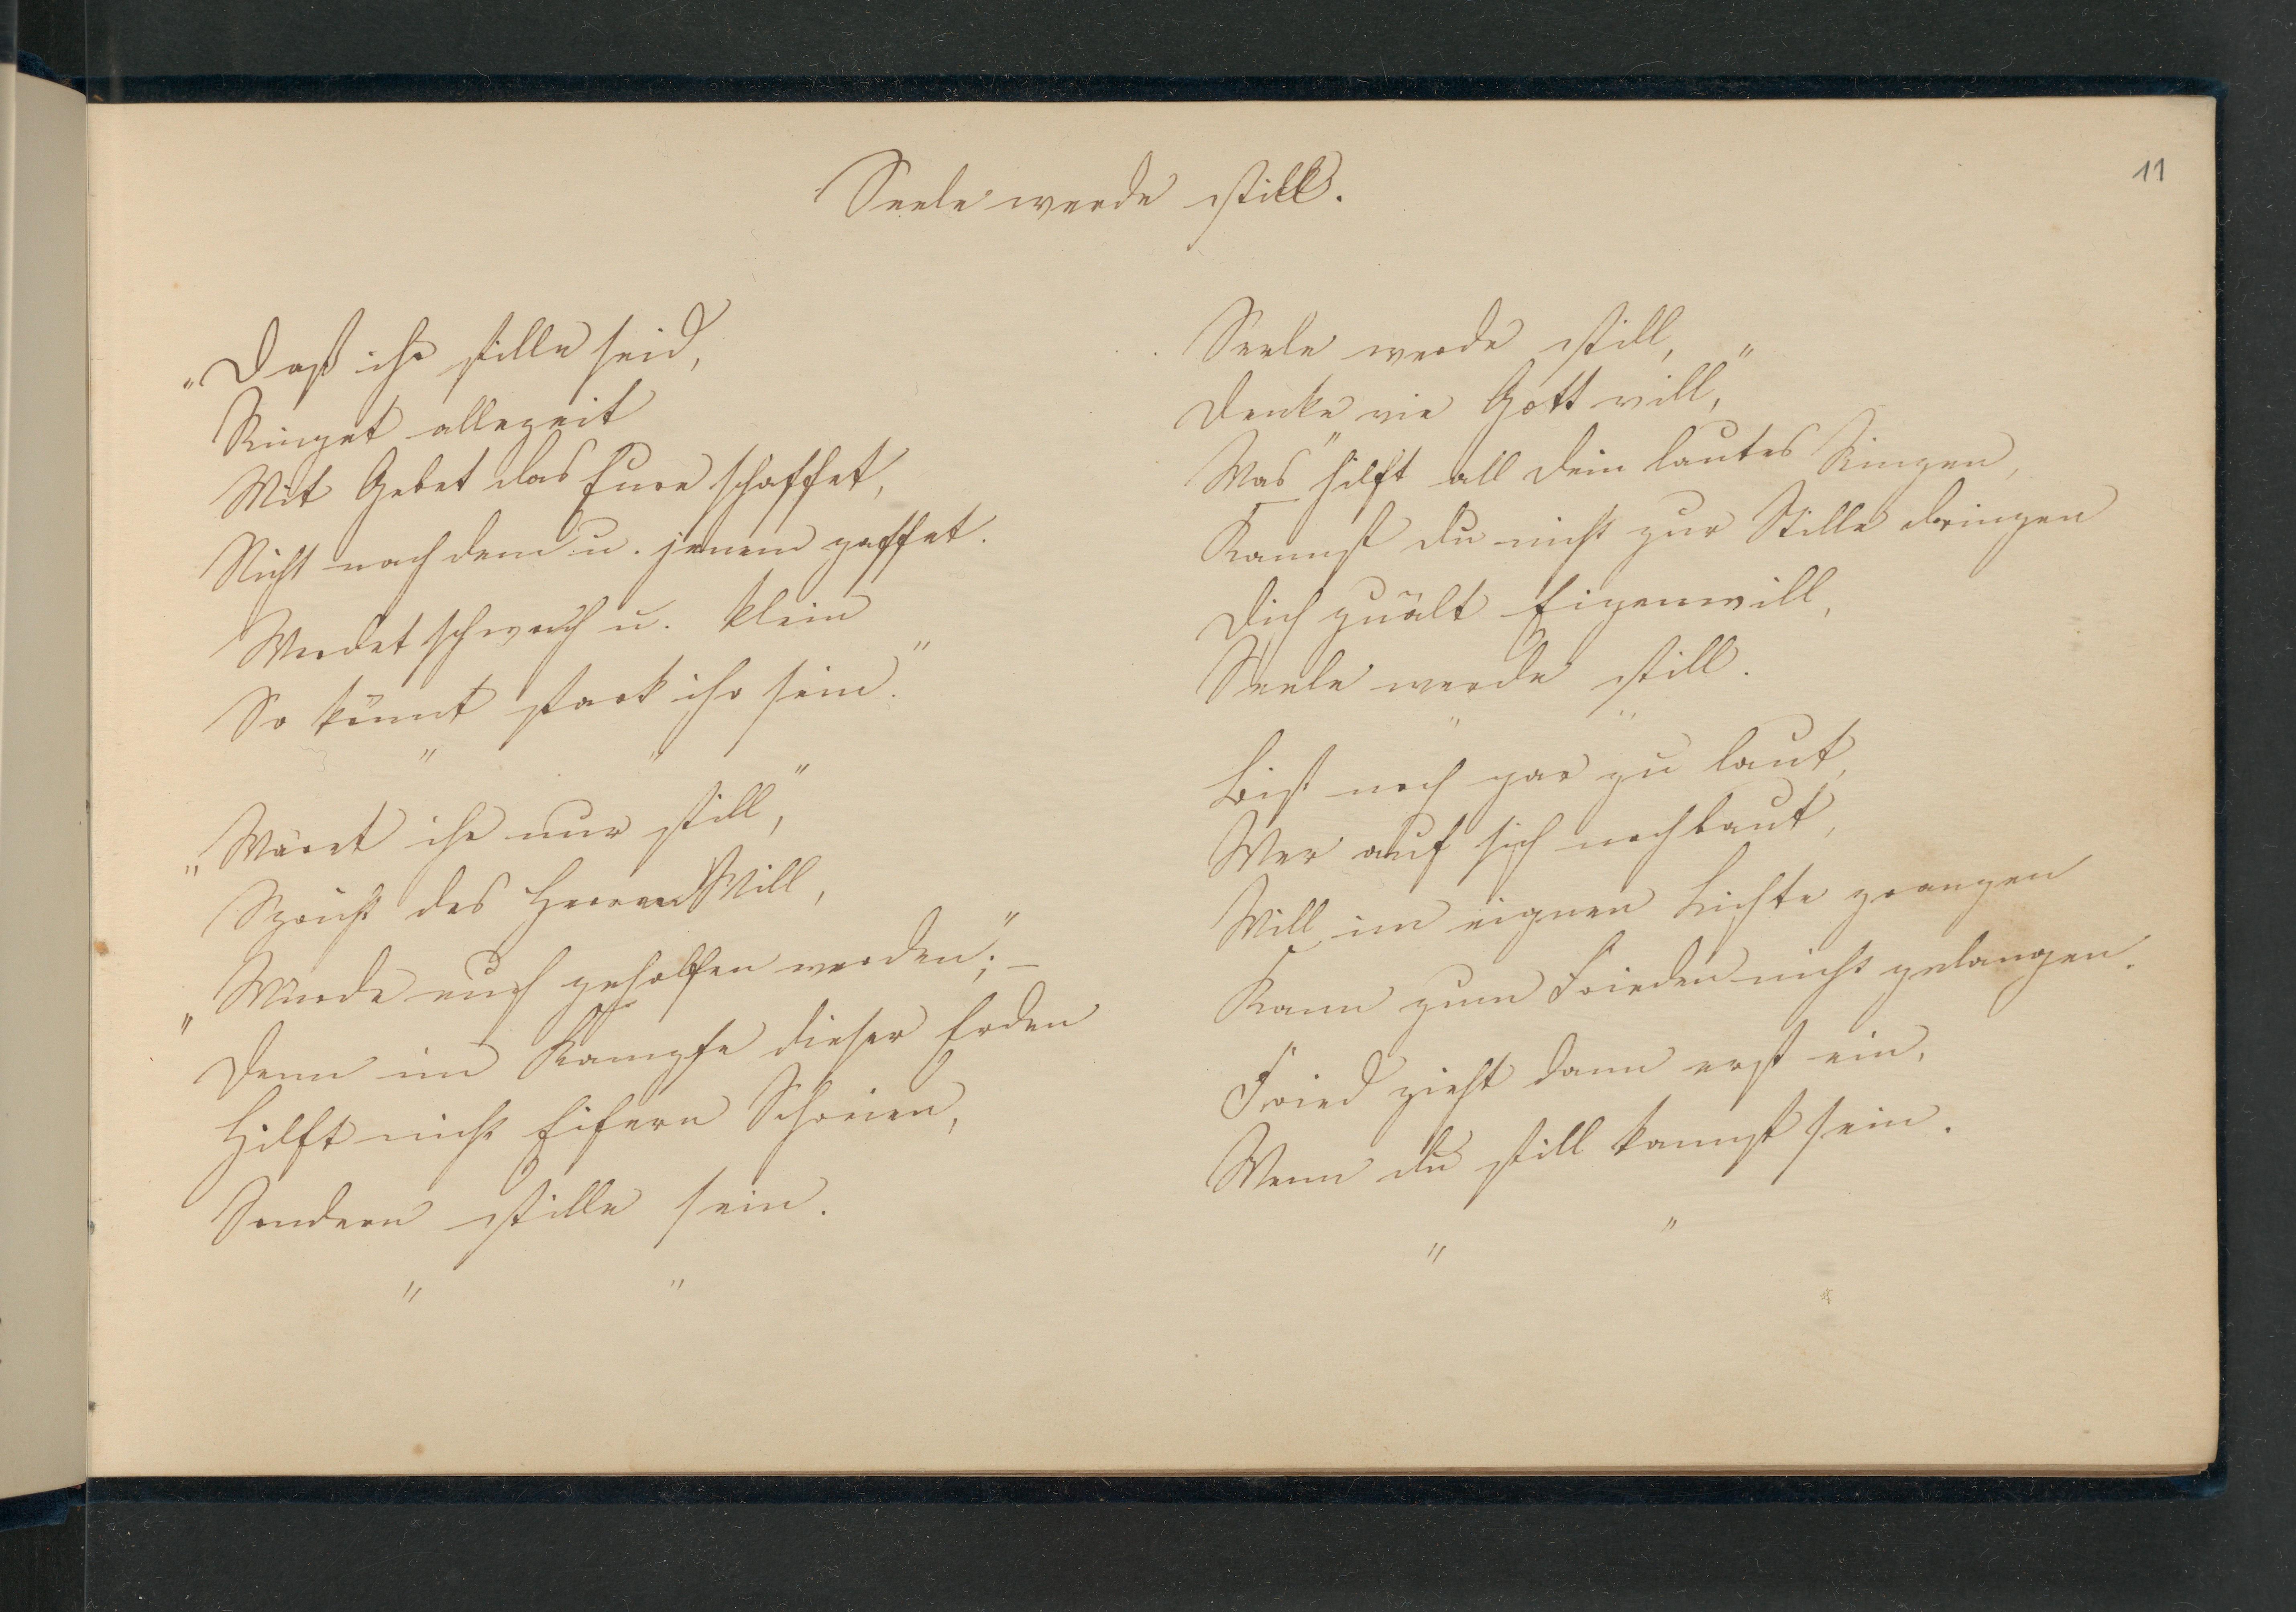 11
Seele werde still.
„Daß ihr stille seid,
Ringet allezeit
Mit Gebet das Eure schaffet,
Nicht nach dem u. jenem gaffet.
Werdet schwach u. klein
So könnt stark ihr sein."
" "
„Wäret ihr nur still,"
Spricht des Herren Will,
„Würde euch geholfen werden;" –
Denn im Kampfe dieser Erden
Hilft nicht Eifern Schreien,
Sondern stille sein.
" "
Seele werde still,
Denke wie Gott will,"
Was hilft all dein lautes Ringen,
Kannst du nicht zur Stille dringen
Dich quält Eigenwill,
Seele werde still.
" "
Bist noch gar zu laut,
Wer auf sich noch baut,
Will im eignen Lichte prangen
Kann zum Frieden nicht gelangen.
Fried zieht dann erst ein,
Wenn du still kannst sein.
" "